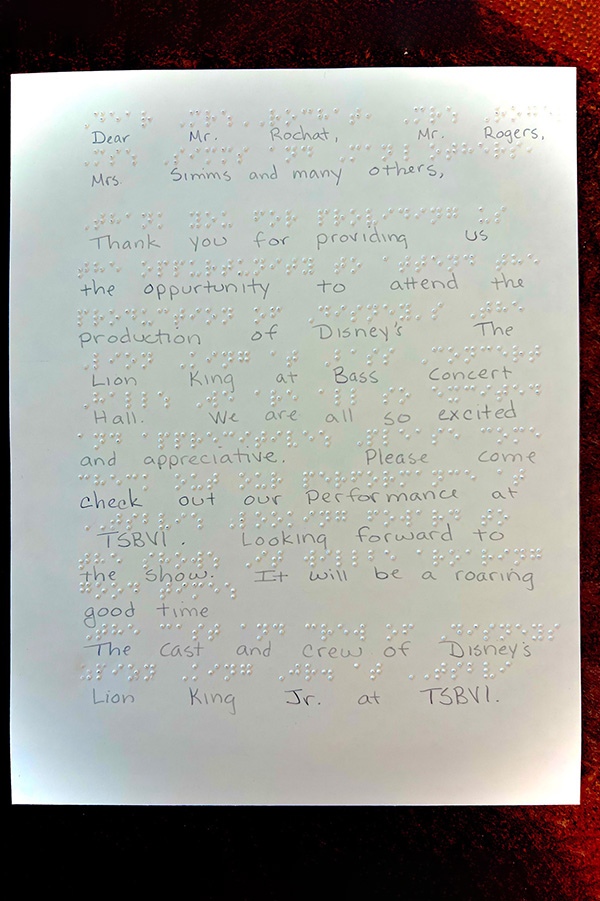 Dear Mr. Rochat, Mr. Rogers,
Mrs. Simms and many others,
Thank you for providing us
the oppurtunity to attend the
production of Disney's The
Lion King at Bass Concert
Hall. We are all so excited
and appreciative. Please come
check out our performance at
TSBVI. Looking forward to
the show. It will be a roaring
good time
The cast and crew of Disney's
Lion King Jr. at TSBVI.